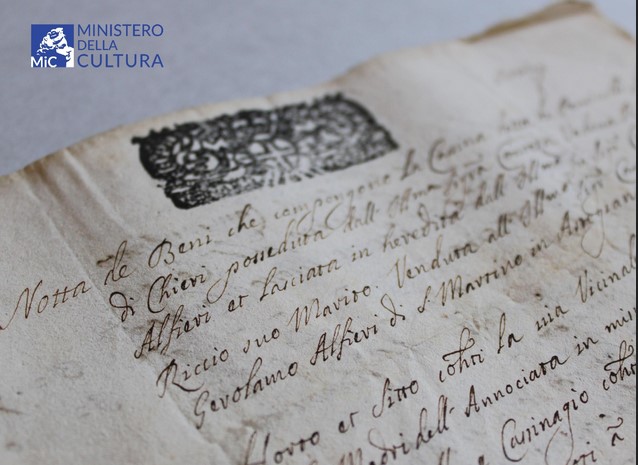 MINISTERO
DELLA
CULTURA
MiC
Notta de Beni che compongono la Casina
di Chieri posseduta dall' Illma Sigra
Alfieri et lasciata in heredità dall' Illmo
Riccio suo Marito. Venduta all' Illmo Sigr
Gerolamo Alfieri di S. Martino in
Horto et sitto cohti la via Vicinale
Madri dell' Annociata in
Cassinagio cohti